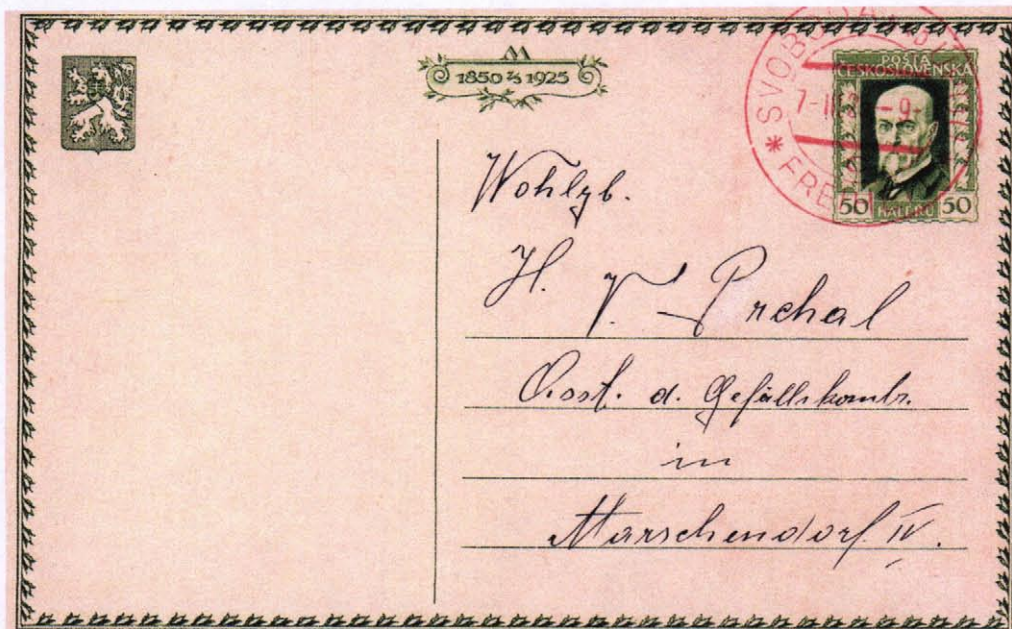 1850 7/3 1925
POŠTA
ČESKOSLOVENSKÁ
50 HALÉŘŮ 50
7-III -9
Wohlgb.
H. V. Prchal
d. Gefällskontr.
in
Marschendorf IV.